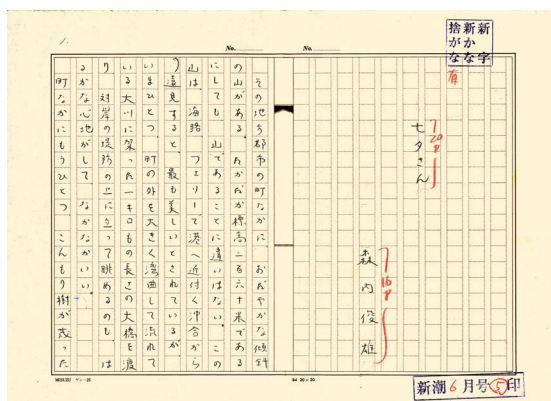 新字
新かな
捨がな
有
20P
七夕さん
16P
森内俊雄
1.
No.
No.
その地方都市の町なかに おだやかな傾斜
の山がある。たかだか標高二百六十米である
にしても 山であることに違いはない。この
山は、海路 フェリーで港へ近付く沖合から
遠見すると、最も美しいとされているが
いまひとつ、町の外を大きく湾曲して流れて
いる大川に架った一キロもの長さの大橋を渡
り 対岸の堤防の上に立って眺めるのも はる
かな心地がして なかなかいい。
町なかにもうひとつ こんもり樹が茂った
20×20
新潮6月号5印